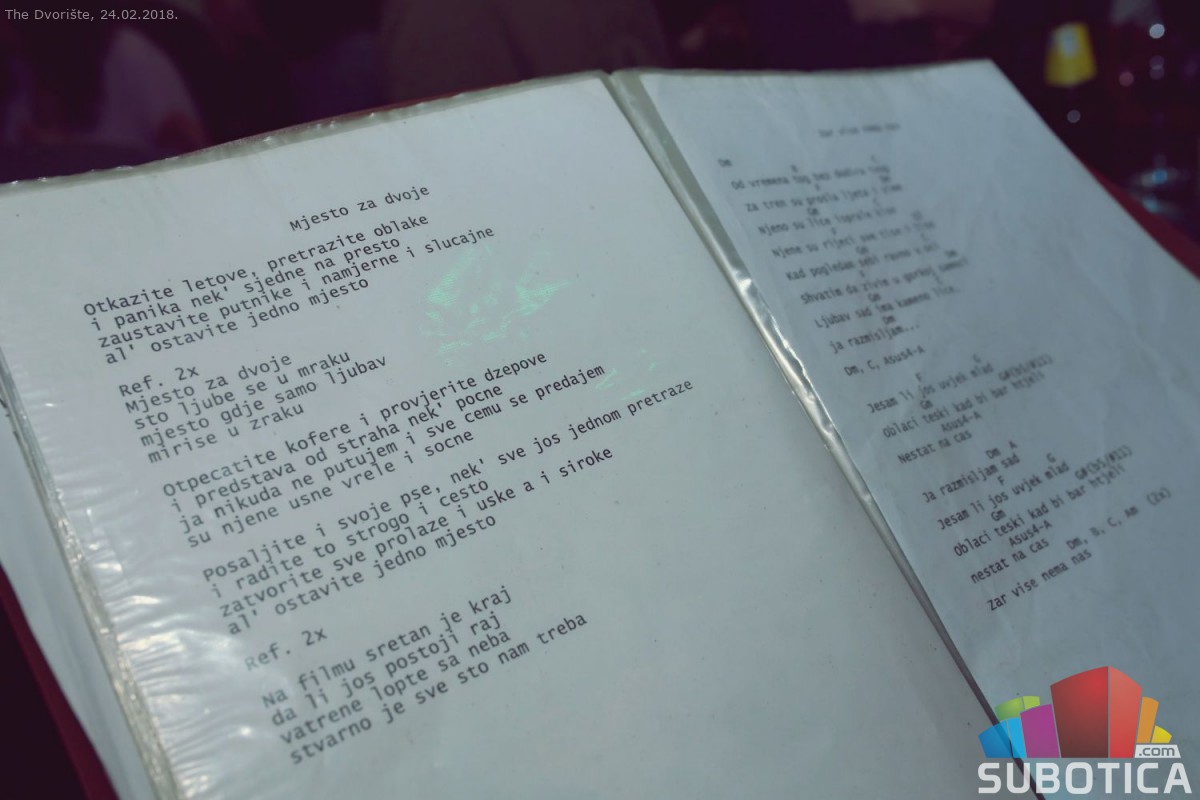 The Dvorište, 24.02.2018.
Mjesto za dvoje
Otkazite letove, pretrazite oblake
i panika nek' sjedne na presto
zaustavite putnike i namjerne i slucajne
al' ostavite jedno mjesto
Ref. 2x
Mjesto za dvoje
sto ljube se u mraku
mjesto gdje samo ljubav
mirise u zraku
Otpecatite kofere i provjerite dzepove
i predstava od straha nek' pocne
ja nikuda ne putujem i sve cemu se predajem
su njene usne vrele i socne
Posaljite i svoje pse, nek' sve jos jednom pretraze
i radite to strogo i cesto
zatvorite sve prolaze i uske a i siroke
al' ostavite jedno mjesto
Ref. 2x
Na filmu sretan je kraj
da li jos postoji raj
vatrene lopte sa neba
stvarno je sve sto nam treba
Zar vise nema nas
Dm
B C
Od vremena tog bez
Za tren su prosla ljeta i zime
Gm
Njeno su lice isprale kise
F
Njene su rijeci sve tise i tise
Gm
Kad pogledam sebi ravno u oci
Dm
Shvatim da zivim u gorkoj samoci
Gm
Ljubav sad ima kameno lice,
Dm
ja razmisljam...
Dm, C, Asus4-A
F G
Jesam li jos uvjek mlad
Gm
Oblaci teski kad bi bar htjeli
Asus4-A
Nestat na cas
Dm A
Ja razmisljam sad
F G
Jesam li jos uvjek mlad
Gm
Oblaci teski kad bi bar htjeli
Asus4-A
nestat na cas
Dm, B, C, Am (2x)
Zar vise nema nas
.com
SUBOTICA